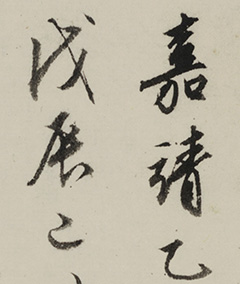 嘉靖乙
戊辰二